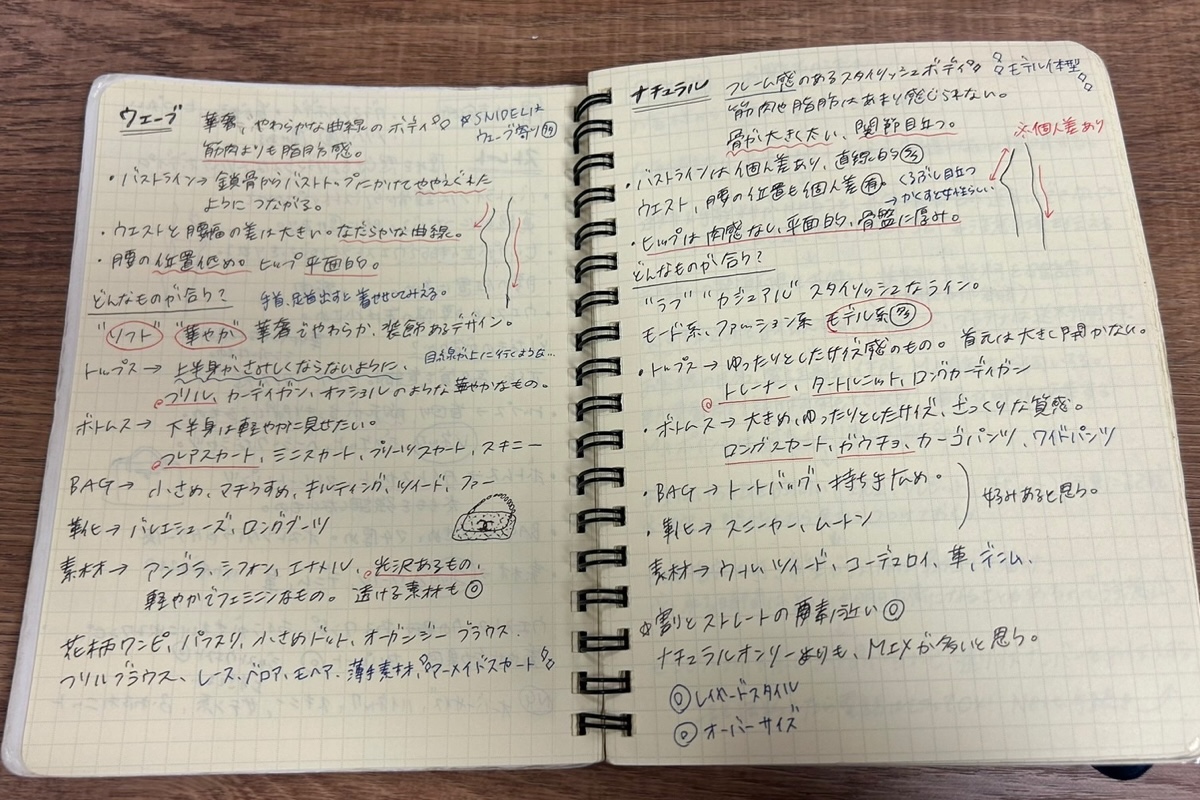 ウェーブ
華奢、やわらかな曲線のボディ ☆SNIDELは
ウェーブ寄り
筋肉よりも脂肪感。
・バストライン→鎖骨からバストトップにかけてややえぐれた
ようにつながる。
・ウエストと腰幅の差は大きい。なだらかな曲線。
・腰の位置低め。ヒップ平面的。
どんなものが合う? 手首、足首出すと着やせしてみえる。
"ソフト" "華やか" 華奢でやわらか、装飾あるデザイン。
トップス→ 上半身がさみしくならないように、 目線が上に行くような…
フリル、カーディガン、オフショルのような華やかなもの。
ボトムス→ 下半身は軽やかに見せたい。
フレアスカート、ミニスカート、プリーツスカート、スキニー
BAG→ 小さめ、マチうすめ、キルティング、ツイード、ファー
靴→ バレエシューズ、ロングブーツ
素材→ アンゴラ、シフォン、エナメル、光沢あるもの、
軽やかでフェミニンなもの。透ける素材も◎
花柄ワンピ、パフスリ、小さめドット、オーガンジーブラウス、
フリルブラウス、レース、ベロア、モヘア、薄手素材、マーメイドスカート
ナチュラル フレーム感のあるスタイリッシュボディ モデル体型
筋肉や脂肪はあまり感じられない。
骨が大きく太い、関節目立つ。 ※個人差あり
・バストラインは個人差あり、直線的
ウエスト、腰の位置も個人差(有)。 くるぶし目立つ
→かくすと女性らしい
・ヒップは肉感なし、平面的、骨盤に厚み。
どんなものが合う?
"ラフ" "カジュアル" スタイリッシュなライン。
モード系、ファッション系 モデル系
・トップス→ ゆったりとしたサイズ感のもの。首元は大きく開かない。
トレーナー、タートルニット、ロングカーディガン
・ボトムス→ 大きめ、ゆったりとしたサイズ、ざっくりな質感。
ロングスカート、ガウチョ、カーゴパンツ、ワイドパンツ
・BAG→ トートバッグ、持ち手広め。
好みあると思う。
・靴→ スニーカー、ムートン
素材→ ウール、ツイード、コーデュロイ、革、デニム、
☆割とストレートの要素に近い◎
ナチュラルオンリーよりも、MIXが多いと思う。
◎レイヤードスタイル
◎オーバーサイズ